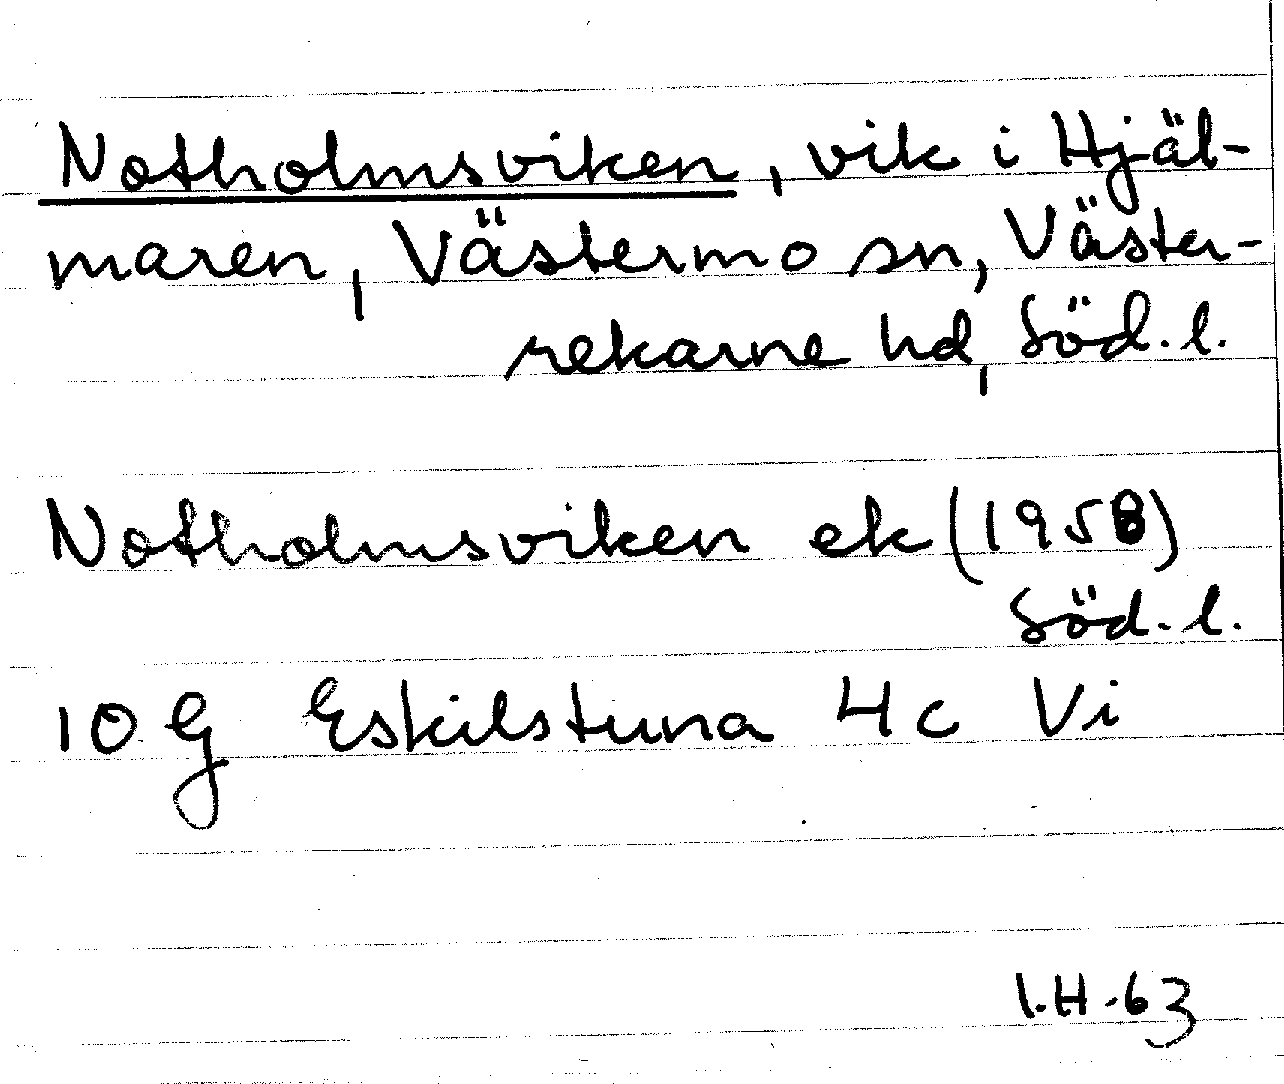 Notholmsviken, vik i Hjäl-
maren, Västermo sn, Väster-
rekarne hd, Söd.l.
Notholmsviken ek (1958)
Söd.l.
10 G Eskilstuna 4c Vi
I.H.63